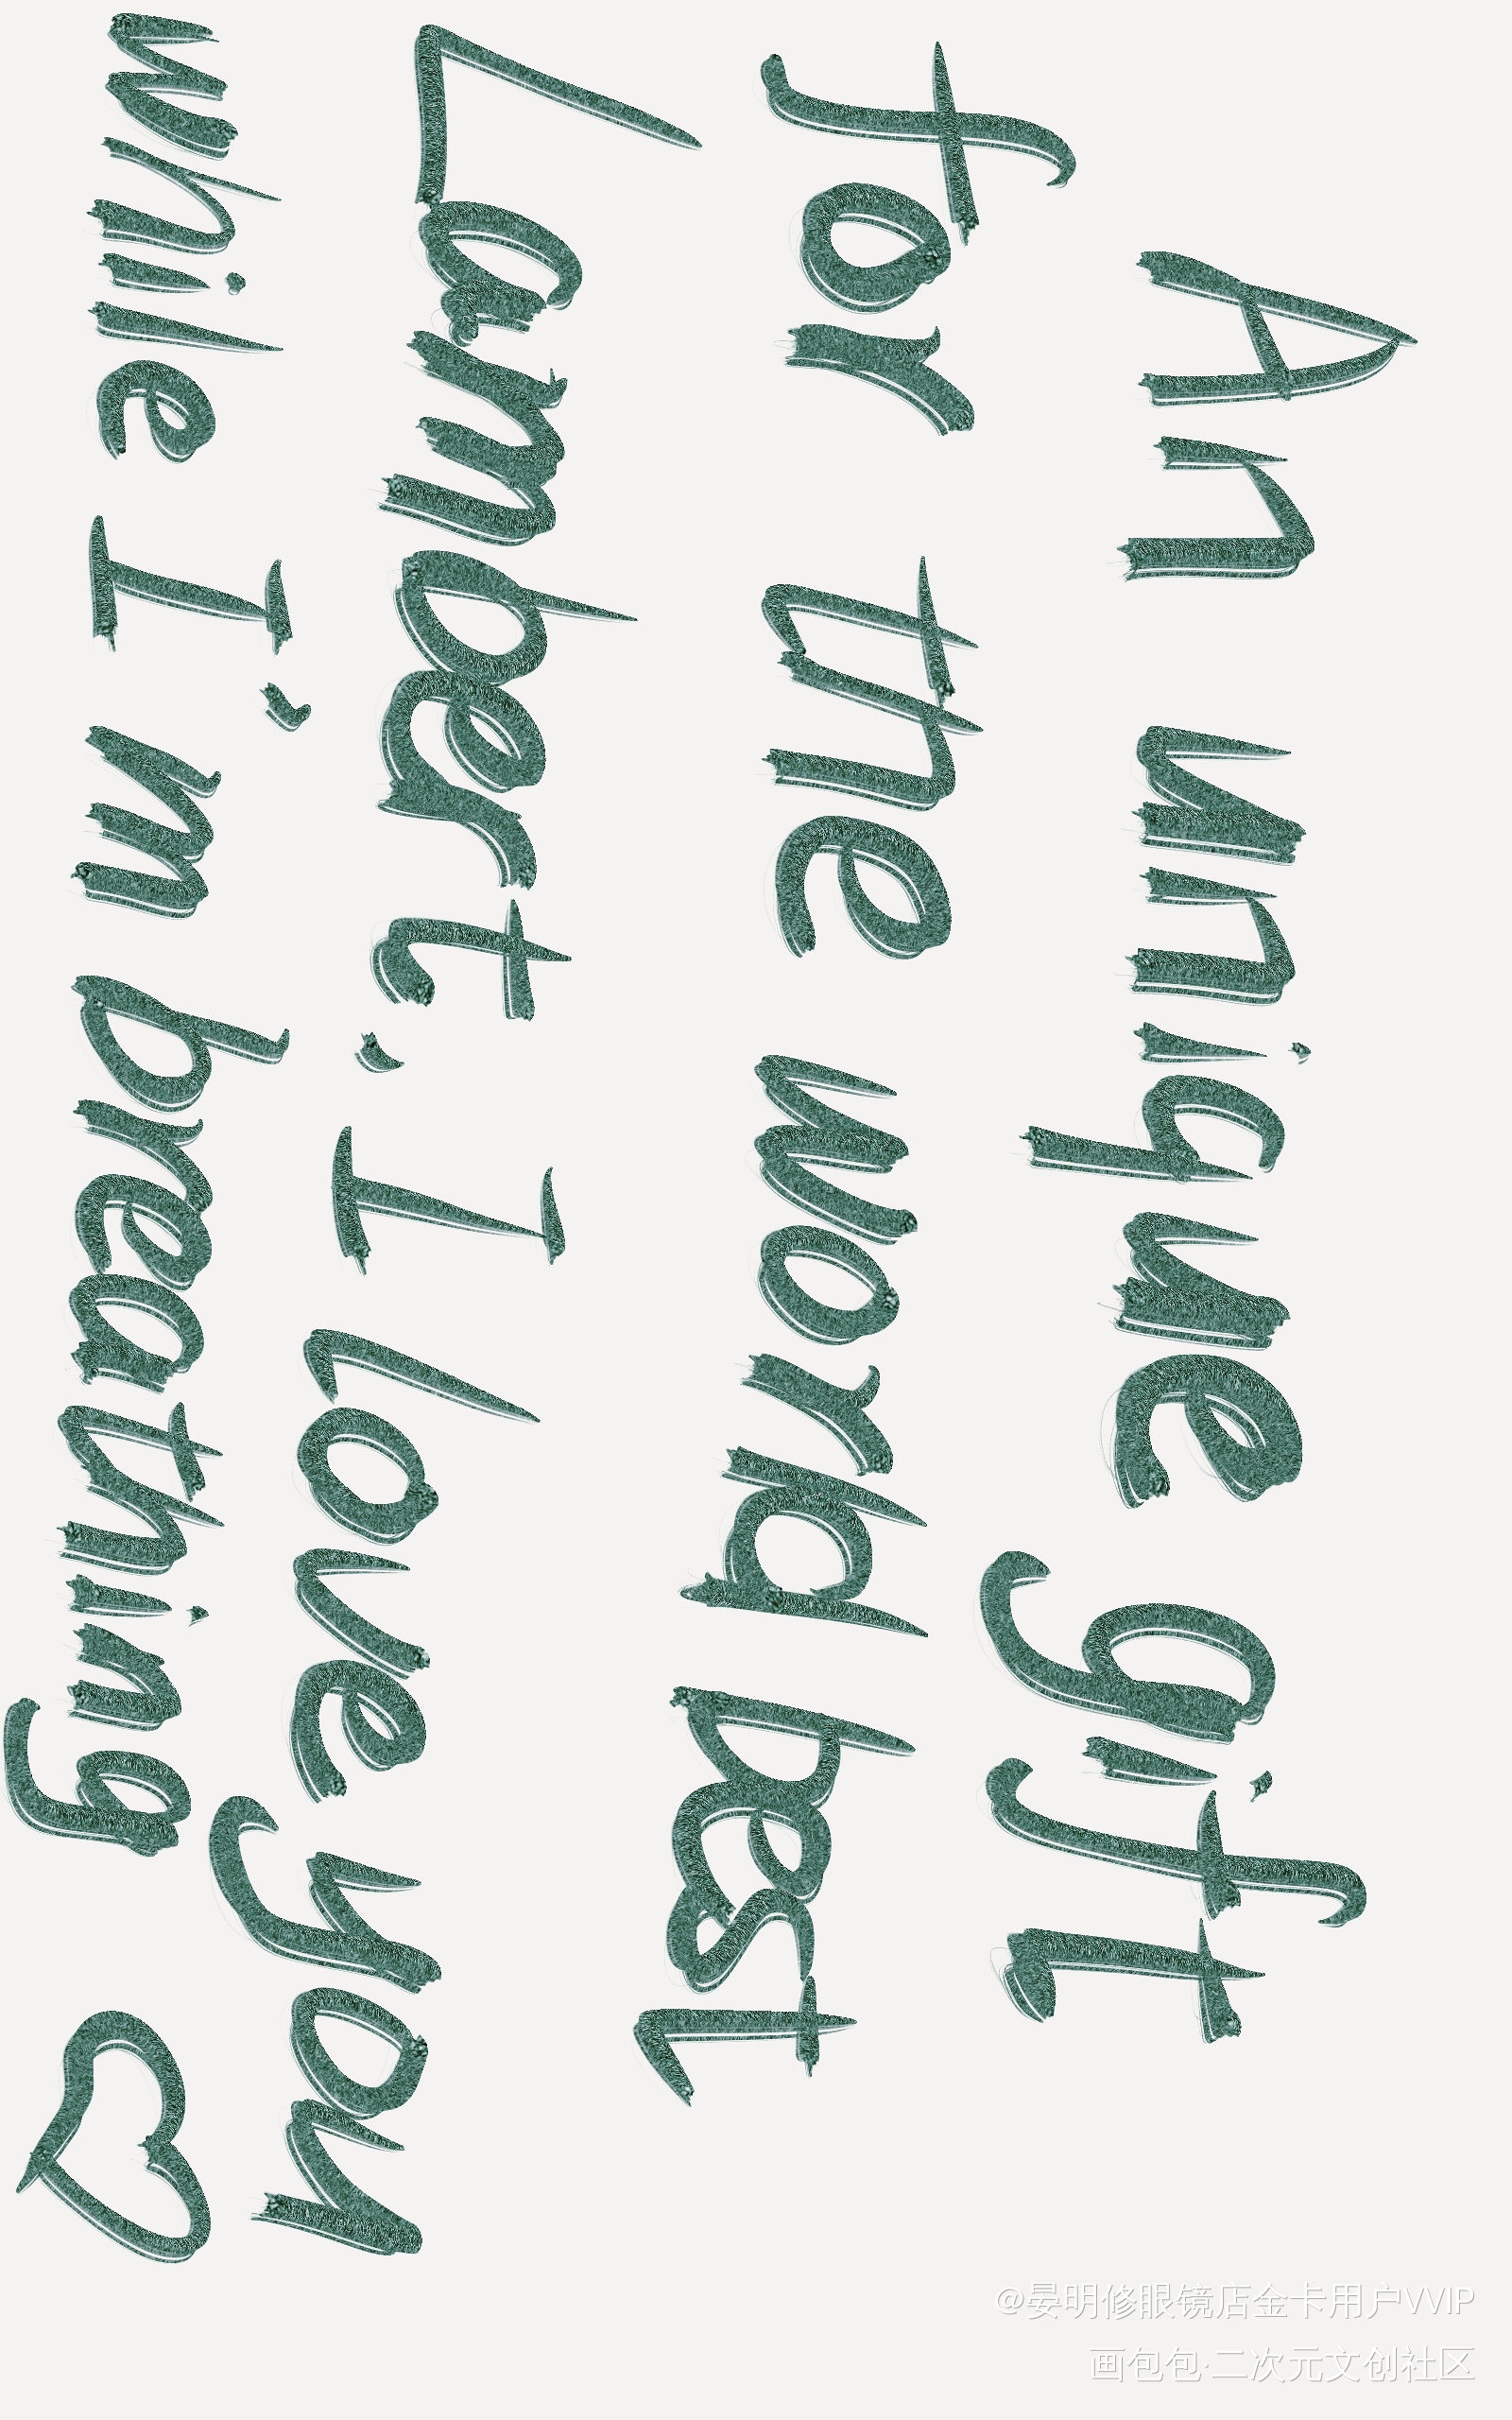 An unique gift
for the world best
Lambert, I love you
while I'm breathing ♡
@晏明修眼镜店金卡用户VVIP
画包包·二次元文创社区